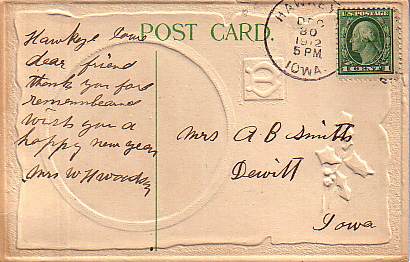 POST CARD.
HAWKEYE
DEC
30
1912
5 PM
IOWA
U.S. POSTAGE
1 CENT 1
Hawkeye Iowa
dear friend
thanks you for
remembeance
wish you a
happy new year
Mrs W H
Mrs A B Smith
Dewitt
Iowa